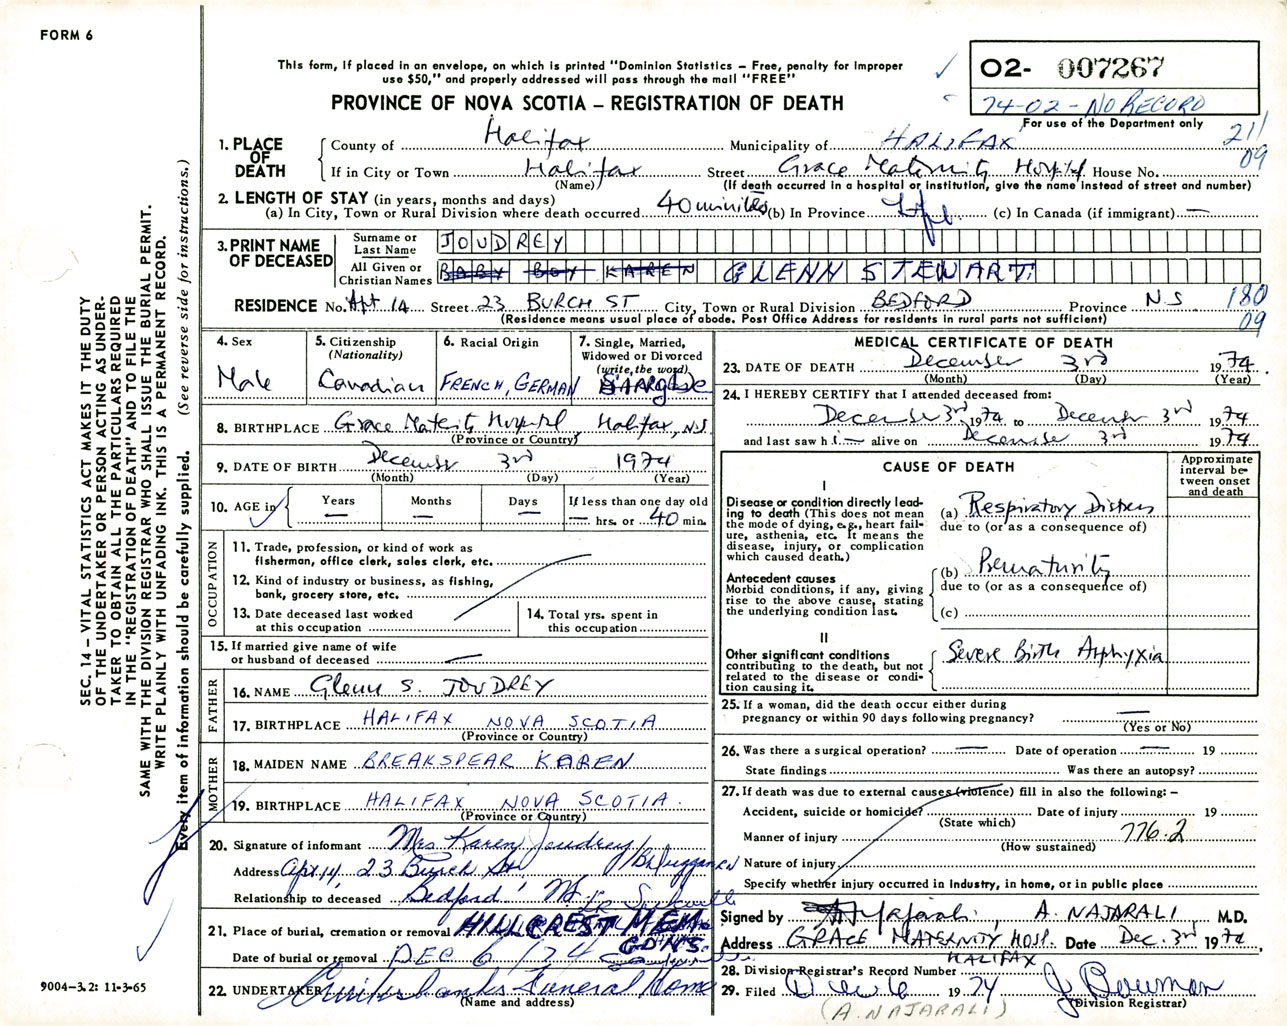 FORM 6
This form, if placed in an envelope, on which is printed "Dominion Statistics – Free, penalty for improper
use $50," and properly addressed will pass through the mail "FREE"
PROVINCE OF NOVA SCOTIA – REGISTRATION OF DEATH
O2- 007267
74-02-NO RECORD
For use of the Department only
211
09
1. PLACE OF DEATH
County of Halifax Municipality of HALIFAX
If in City or Town Halifax Street Grace Maternity Hospital House No.
(Name) (If death occurred in a hospital or institution, give the name instead of street and number)
2. LENGTH OF STAY (in years, months and days)
(a) In City, Town or Rural Division where death occurred 40 minutes (b) In Province Life (c) In Canada (if immigrant) —
3. PRINT NAME OF DECEASED
Surname or Last Name JOUDREY
All Given or Christian Names BABY BOY KAREN GLENN STEWART
RESIDENCE No. Apt 14 Street 23 BURCH ST City, Town or Rural Division BEDFORD Province N.S
180
09
(Residence means usual place of abode. Post Office Address for residents in rural parts not sufficient)
4. Sex
Male
5. Citizenship
(Nationality)
Canadian
6. Racial Origin
FRENCH, GERMAN
7. Single, Married,
Widowed or Divorced
(write, the word)
Single
8. BIRTHPLACE Grace Maternity Hospital, Halifax, N.S.
(Province or Country)
9. DATE OF BIRTH December 3rd 1974
(Month) (Day) (Year)
10. AGE in
Years —
Months —
Days —
If less than one day old
— hrs. or 40 min.
OCCUPATION
11. Trade, profession, or kind of work as
fisherman, office clerk, sales clerk, etc.
12. Kind of industry or business, as fishing,
bank, grocery store, etc.
13. Date deceased last worked
at this occupation
14. Total yrs. spent in
this occupation
15. If married give name of wife
or husband of deceased —
FATHER
16. NAME Glenn S. JOUDREY
17. BIRTHPLACE HALIFAX NOVA SCOTIA
(Province or Country)
MOTHER
18. MAIDEN NAME BREAKSPEAR KAREN
19. BIRTHPLACE HALIFAX NOVA SCOTIA.
(Province or Country)
20. Signature of informant Mrs Karen Joudrey
Address Apt 14, 23 Burch St.
Relationship to deceased Bedford
21. Place of burial, cremation or removal HILLCREST MEM.
GDNS.
Date of burial or removal DEC 6/74
22. UNDERTAKER Cruikshanks Funeral Home
(Name and address)
MEDICAL CERTIFICATE OF DEATH
23. DATE OF DEATH December 3rd 1974
(Month) (Day) (Year)
24. I HEREBY CERTIFY that I attended deceased from:
December 3rd 1974 to December 3rd 1974
and last saw h i— alive on December 3rd 1974
CAUSE OF DEATH
Approximate
interval be-
tween onset
and death
I
Disease or condition directly lead-
ing to death (This does not mean
the mode of dying, e.g., heart fail-
ure, asthenia, etc. It means the
disease, injury, or complication
which caused death.)
(a) Respiratory Distress
due to (or as a consequence of)
Antecedent causes
Morbid conditions, if any, giving
rise to the above cause, stating
the underlying condition last.
(b) Prematurity
due to (or as a consequence of)
(c)
II
Other significant conditions
contributing to the death, but not
related to the disease or condi-
tion causing it.
Severe Birth Asphyxia
25. If a woman, did the death occur either during
pregnancy or within 90 days following pregnancy? —
(Yes or No)
26. Was there a surgical operation? — Date of operation — 19
State findings Was there an autopsy?
27. If death was due to external causes (violence) fill in also the following: –
Accident, suicide or homicide? Date of injury 19
(State which)
Manner of injury 776.2
(How sustained)
Nature of injury
Specify whether injury occurred in industry, in home, or in public place
Signed by A Najarali, A. NAJARALI M.D.
Address GRACE MATERNITY HOSP. Date Dec. 3rd 1974.
HALIFAX
28. Division Registrar's Record Number
29. Filed Dec 6 1974 J Bowman
(Division Registrar)
(A. NAJARALI)
SEC. 14 – VITAL STATISTICS ACT MAKES IT THE DUTY
OF THE UNDERTAKER OR PERSON ACTING AS UNDER-
TAKER TO OBTAIN ALL THE PARTICULARS REQUIRED
IN THE "REGISTRATION OF DEATH" AND TO FILE THE
SAME WITH THE DIVISION REGISTRAR WHO SHALL ISSUE THE BURIAL PERMIT.
WRITE PLAINLY WITH UNFADING INK. THIS IS A PERMANENT RECORD.
Every item of information should be carefully supplied. (See reverse side for instructions.)
9004-3.2: 11-3-65